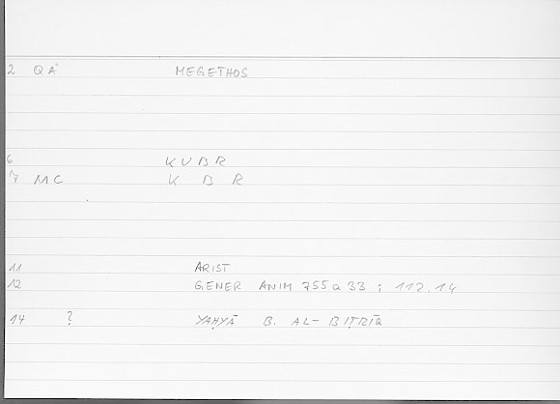 2 QA MEGETHOS
6 KUBR
7 MC K B R
11 ARIST
12 GENER ANIM 755a33 ; 112.14
14 ? YAḤYĀ B. AL-BIṬRĪQ